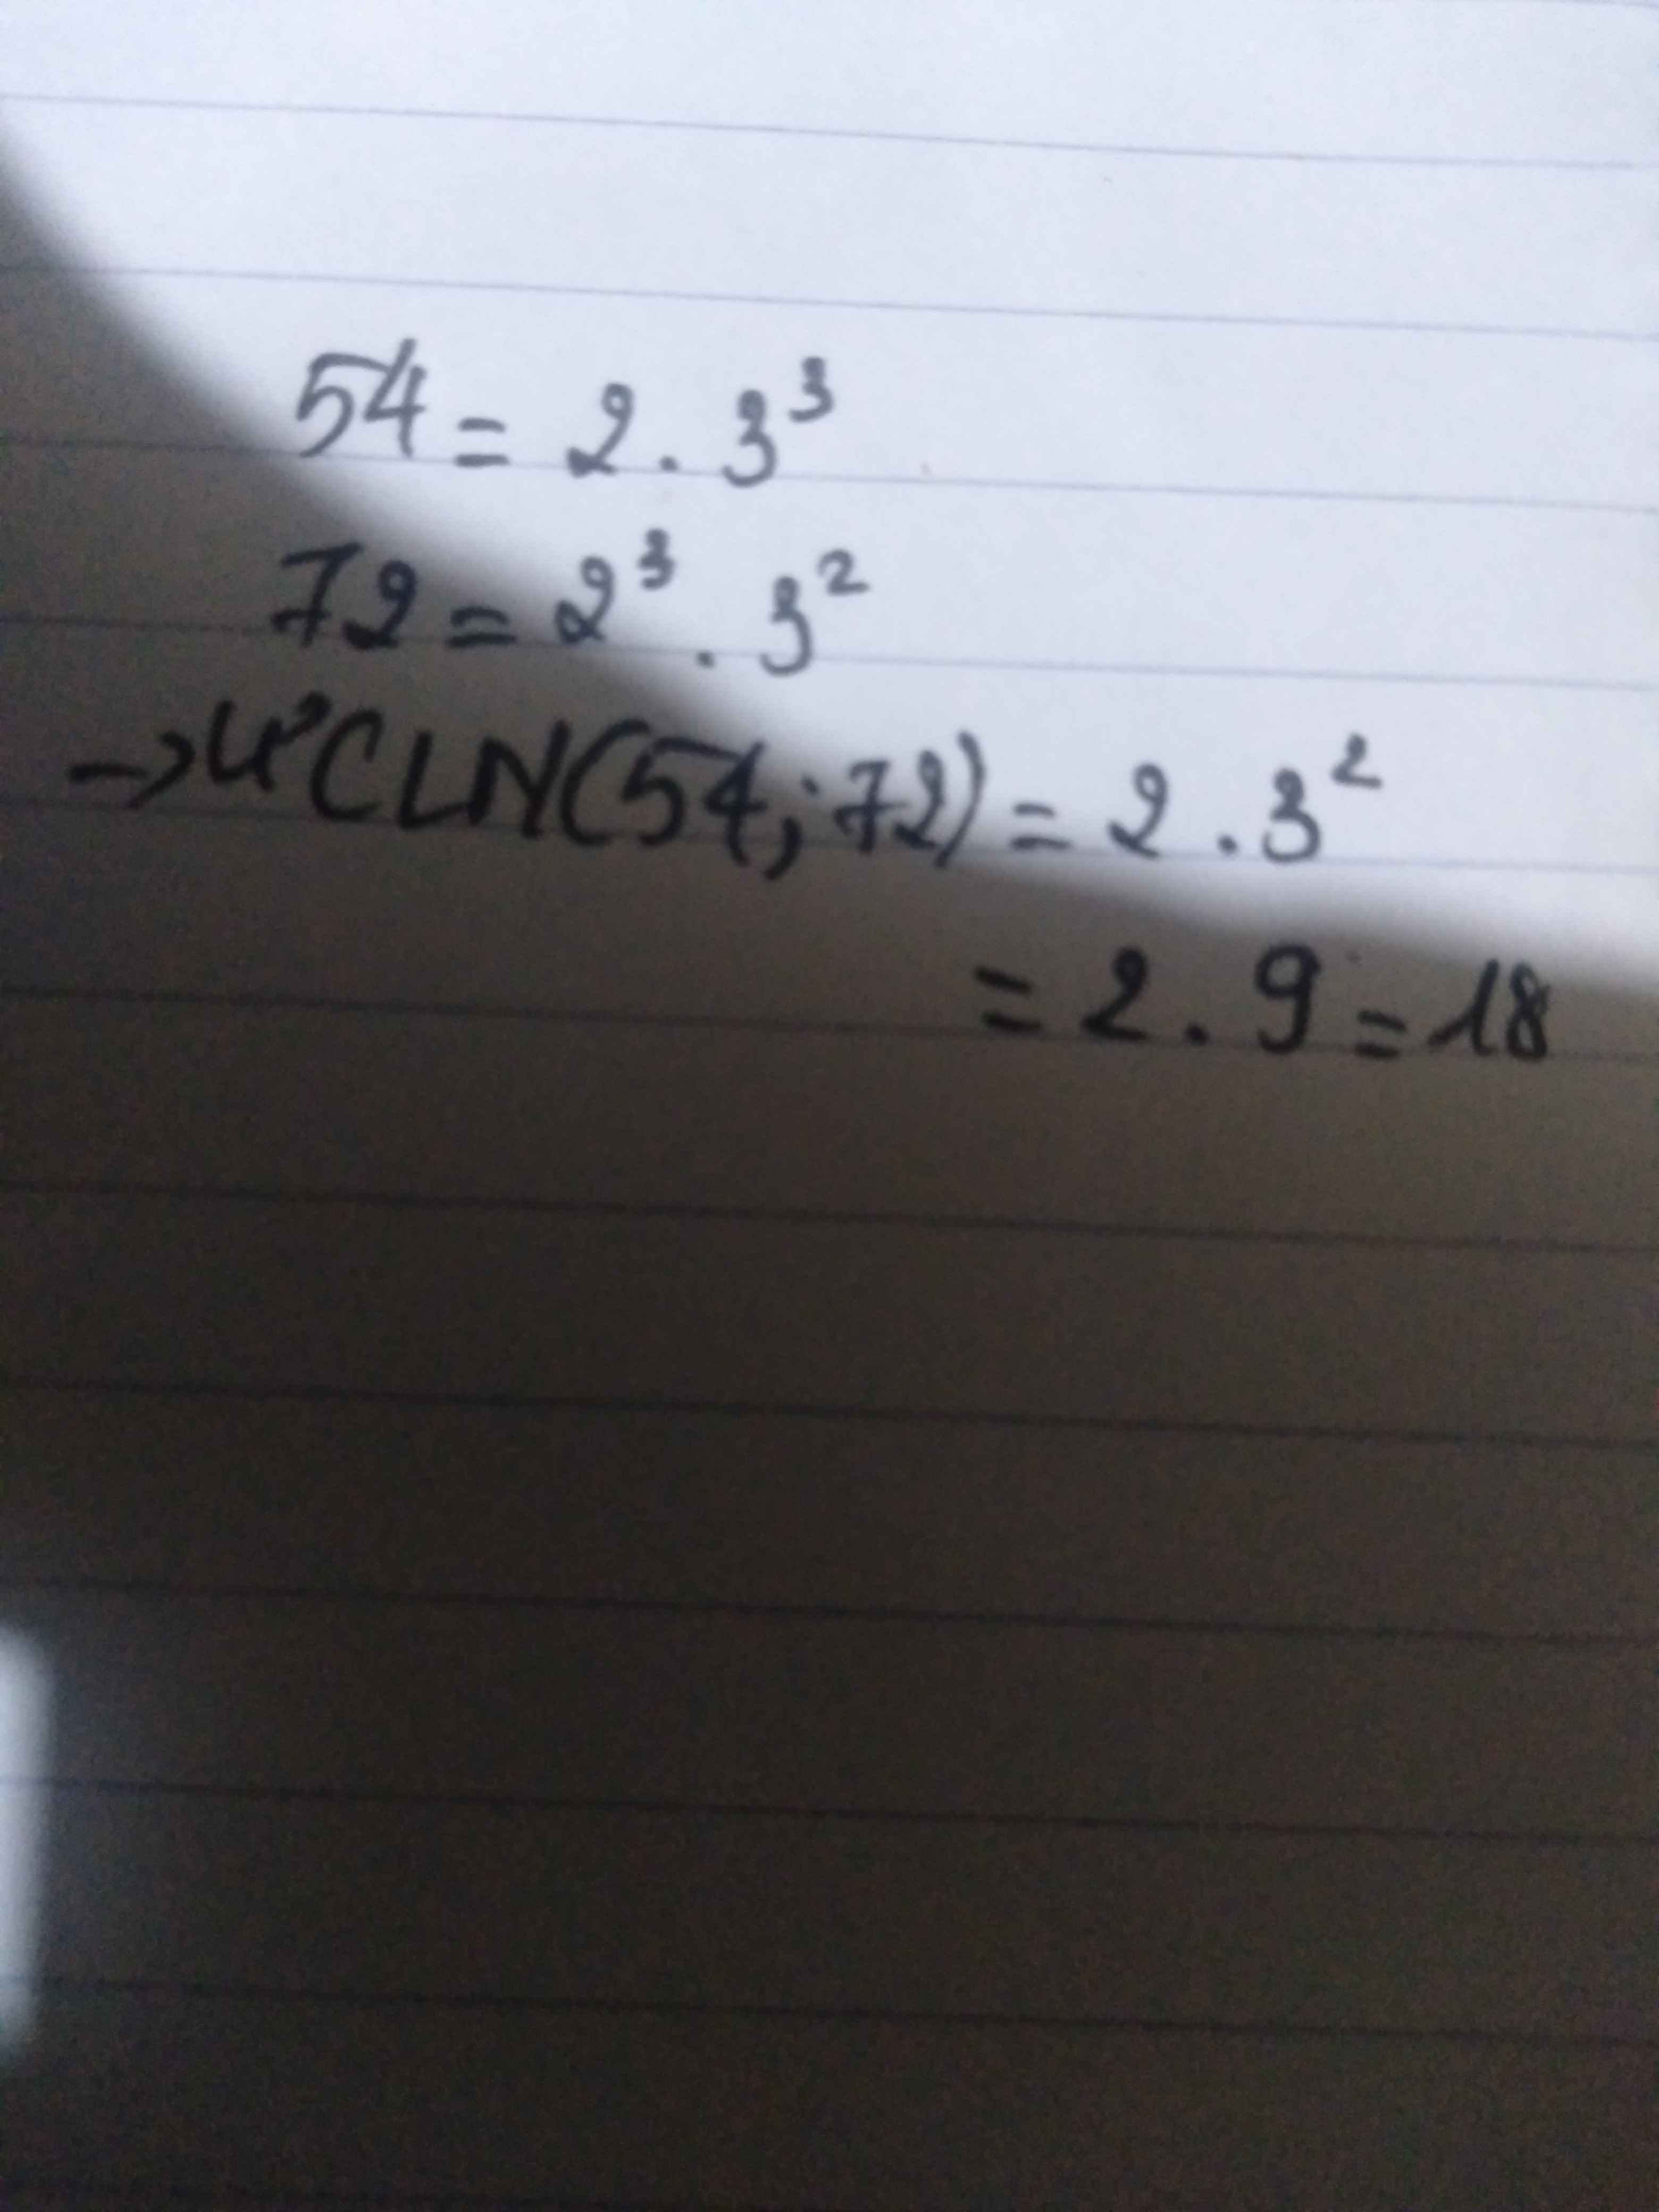 54 = 2 . 3³
72 = 2³ . 3²
→ ƯCLN(54; 72) = 2 . 3²
= 2 . 9 = 18